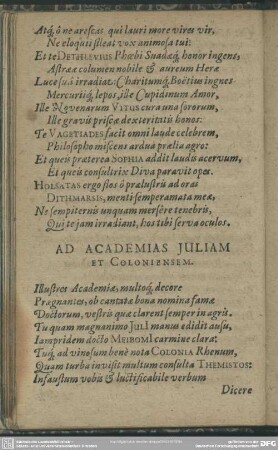 Atq́, ô ne arescas qui lauri more vires vir,
Ne eloquii sileat vox animosa tui:
Et te DETHLEVIUS Phœbi Suadæq́, honor ingens,
Astrææ columen nobile & aureum Heræ
Luce suâ irradiat: Charitumq́, Boëtius ignes
Mercuriiq́, lepos, ille Cupidinum Amor,
Ille Novenarum VITUS cura una sororum,
Ille gravis priscæ dexteritatis honos:
Te VAGETIADES facit omni laude celebrem,
Philosopho miscens ardua prælia agro:
Et queis præterea SOPHIA addit laudis acervum,
Et queis consultrix Diva paravit opes.
HOLSATAS ergo flos ô prælustris ad oras
DITHMARSIS, menti semperamata meæ,
Ne sempiternis unquam mersère tenebris,
Qui te jam irradiant, hos tibi serva oculos.
AD ACADEMIAS JULIAM
ET COLONIENSEM.
Illustres Academiæ, multoq́, decore
Prægnantes, ob cantata bona nomina famæ
Doctorum, vestris quæ clarent semper in agris.
Tu quam magnanimo JULI manus edidit ausu,
Iampridem docto MEIBOMI carmine clara:
Tuq́, ad vinosum benè nota COLONIA Rhenum,
Quam turba invisit multum consulta THEMISTOS:
Infaustum vobis & luctificabile verbum
Dicere